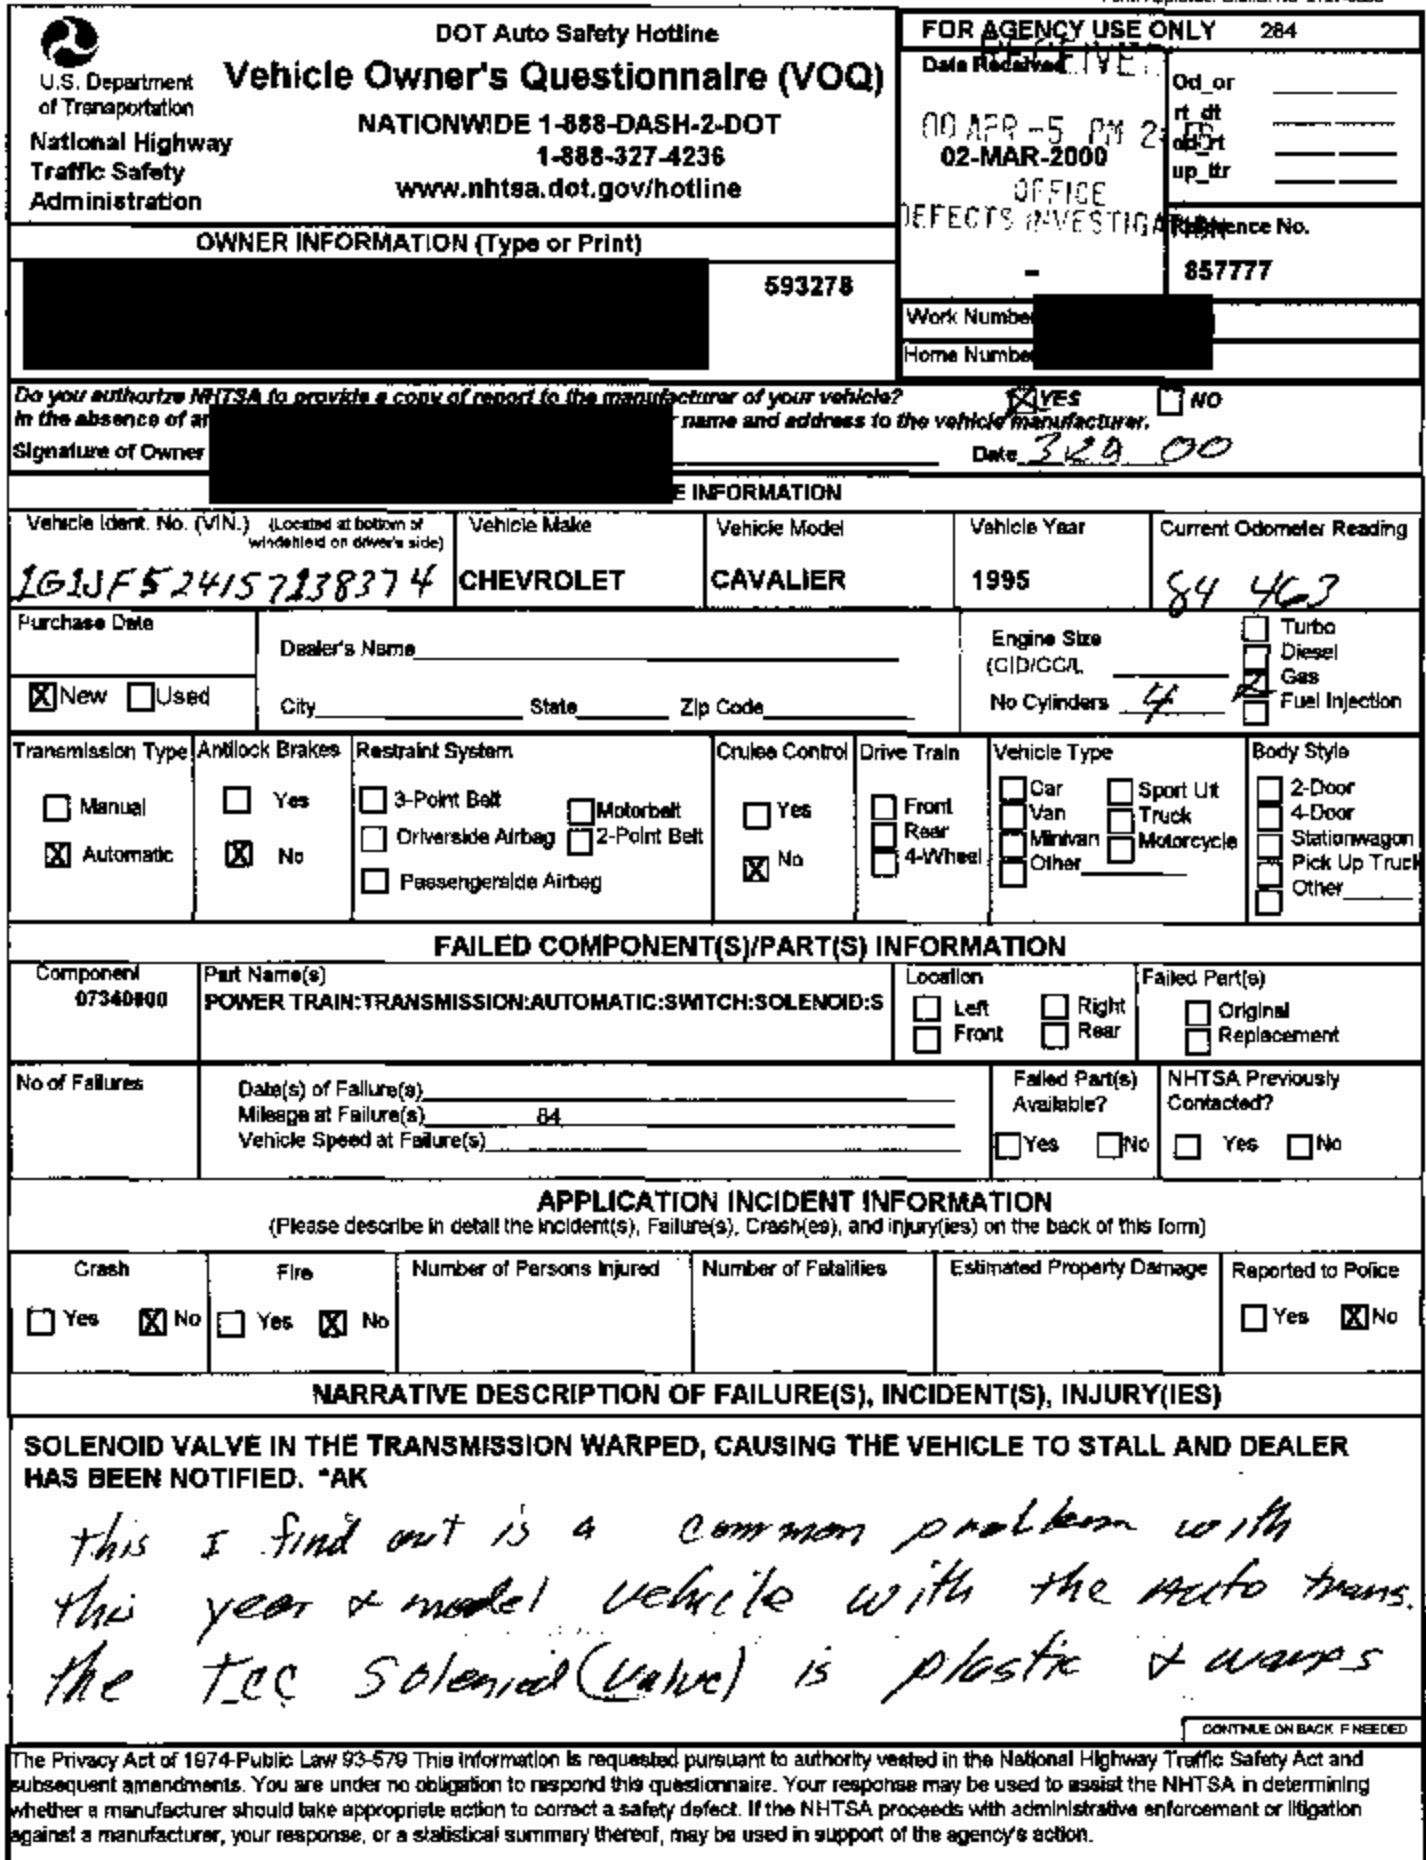 DOT Auto Safety Hotline
Vehicle Owner's Questionnaire (VOQ)
NATIONWIDE 1-888-DASH-2-DOT
1-888-327-4236
www.nhtsa.dot.gov/hotline
U.S. Department
of Transportation
National Highway
Traffic Safety
Administration
FOR AGENCY USE ONLY 284
Date Received
00 APR -5 PM
02-MAR-2000
OFFICE
DEFECTS INVESTIGATION
Od_or
rt_dt
od_rt
up_ltr
Reference No.
857777
OWNER INFORMATION (Type or Print)
593278
Work Number
Home Number
Do you authorize NHTSA to provide a copy of report to the manufacturer of your vehicle? YES NO
In the absence of an name and address to the vehicle manufacturer.
Signature of Owner Date 3 29 00
E INFORMATION
Vehicle Ident. No. (VIN.) (Located at bottom of windshield on driver's side)
1G1JF524157138374
Vehicle Make
CHEVROLET
Vehicle Model
CAVALIER
Vehicle Year
1995
Current Odometer Reading
84 463
Purchase Date
X New Used
Dealer's Name
City State Zip Code
Engine Size
(CID/CC/L
No Cylinders 4
Turbo
Diesel
Gas
Fuel Injection
Transmission Type
Manual
X Automatic
Antilock Brakes
Yes
X No
Restraint System
3-Point Belt
Driverside Airbag
Passengerside Airbag
Motorbelt
2-Point Belt
Cruise Control
Yes
X No
Drive Train
Front
Rear
4-Wheel
Vehicle Type
Car
Van
Minivan
Other
Sport Ut
Truck
Motorcycle
Body Style
2-Door
4-Door
Stationwagon
Pick Up Truck
Other
FAILED COMPONENT(S)/PART(S) INFORMATION
Component
07340000
Part Name(s)
POWER TRAIN:TRANSMISSION:AUTOMATIC:SWITCH:SOLENOID:S
Location
Left Right
Front Rear
Failed Part(s)
Original
Replacement
No of Failures
Date(s) of Failure(s)
Mileage at Failure(s) 84
Vehicle Speed at Failure(s)
Failed Part(s)
Available?
Yes No
NHTSA Previously
Contacted?
Yes No
APPLICATION INCIDENT INFORMATION
(Please describe in detail the incident(s), Failure(s), Crash(es), and injury(ies) on the back of this form)
Crash
Yes X No
Fire
Yes X No
Number of Persons Injured
Number of Fatalities
Estimated Property Damage
Reported to Police
Yes X No
NARRATIVE DESCRIPTION OF FAILURE(S), INCIDENT(S), INJURY(IES)
SOLENOID VALVE IN THE TRANSMISSION WARPED, CAUSING THE VEHICLE TO STALL AND DEALER
HAS BEEN NOTIFIED. *AK
this I find out is a common problem with
this year & model vehicle with the Auto trans.
the TCC Solenoid (Valve) is plastic & warps
CONTINUE ON BACK IF NEEDED
The Privacy Act of 1974-Public Law 93-579 This information is requested pursuant to authority vested in the National Highway Traffic Safety Act and
subsequent amendments. You are under no obligation to respond this questionnaire. Your response may be used to assist the NHTSA in determining
whether a manufacturer should take appropriate action to correct a safety defect. If the NHTSA proceeds with administrative enforcement or litigation
against a manufacturer, your response, or a statistical summary thereof, may be used in support of the agency's action.